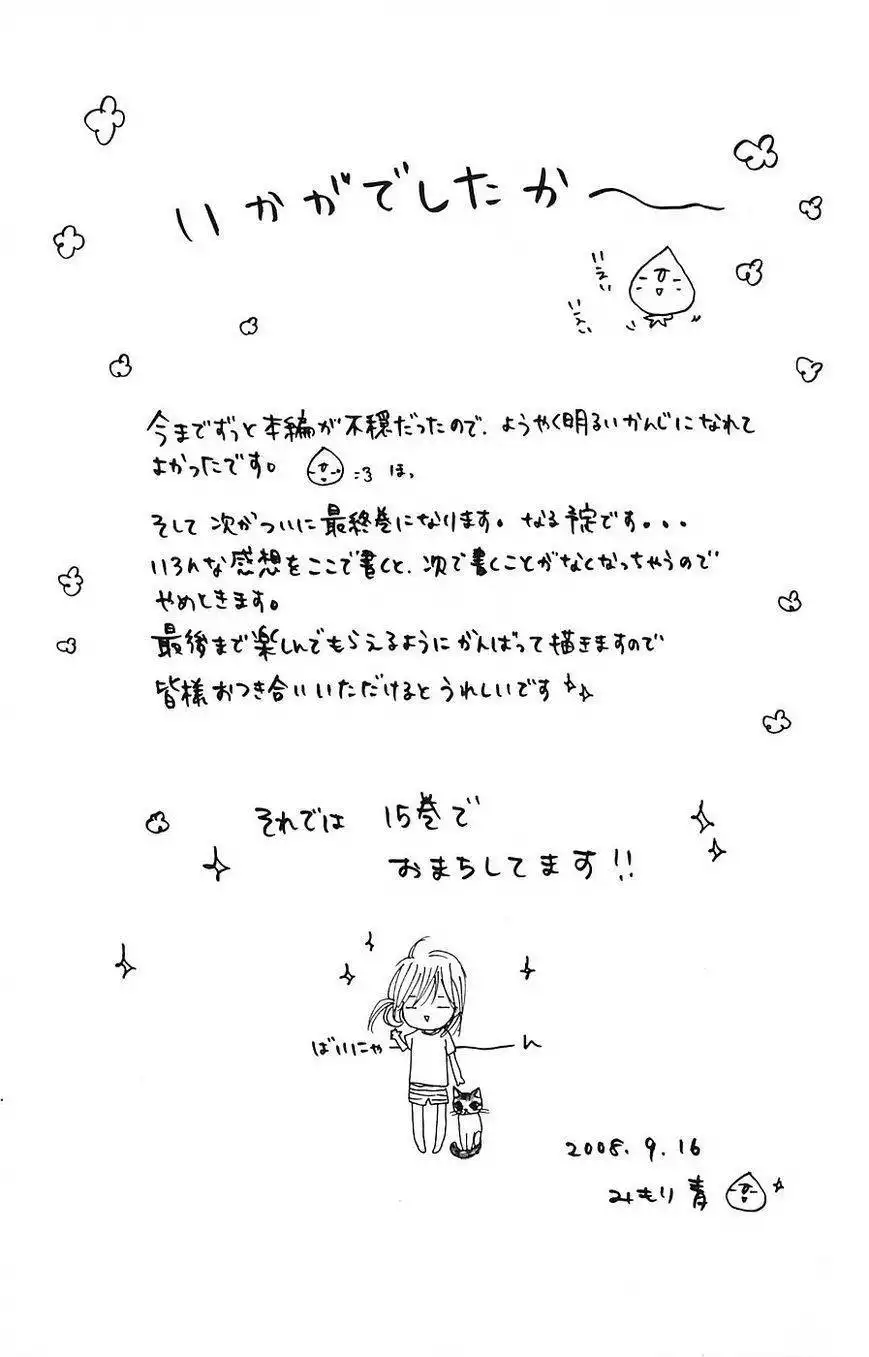 いかがでしたか〜
いえい
いえい
今までずっと本編が不穏だったので、ようやく明るいかんじになれて
よかったです。 =3 ほっ
そして 次がついに 最終巻になります。なる予定です。。。
いろんな感想をここで書くと、次で書くことがなくなっちゃうので
やめときます。
最後まで楽しんでもらえるように がんばって描きますので
皆様おつき合いいただけると うれしいです
それでは 15巻で
おまちしてます!!
ばいにゃーん
2008. 9. 16
みもり 青